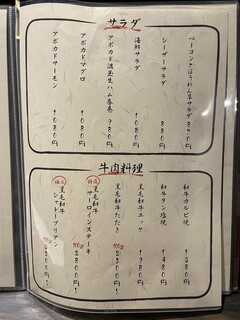 サラダ
ベーコンとほうれん草サラダ 880円
シーザーサラダ 880円
海鮮サラダ 1080円
アボカド温玉生ハム巻巻 980円
アボカドマグロ 1080円
アボカドサーモン 1080円
牛肉料理
和牛カルビ焼 1380円
和牛タン塩焼 1480円
黒毛和牛ユッケ 1980円
黒毛和牛たたき
黒毛和牛
サーロインステーキ
100g 2800円
黒毛和牛
シャトーブリアン
100g